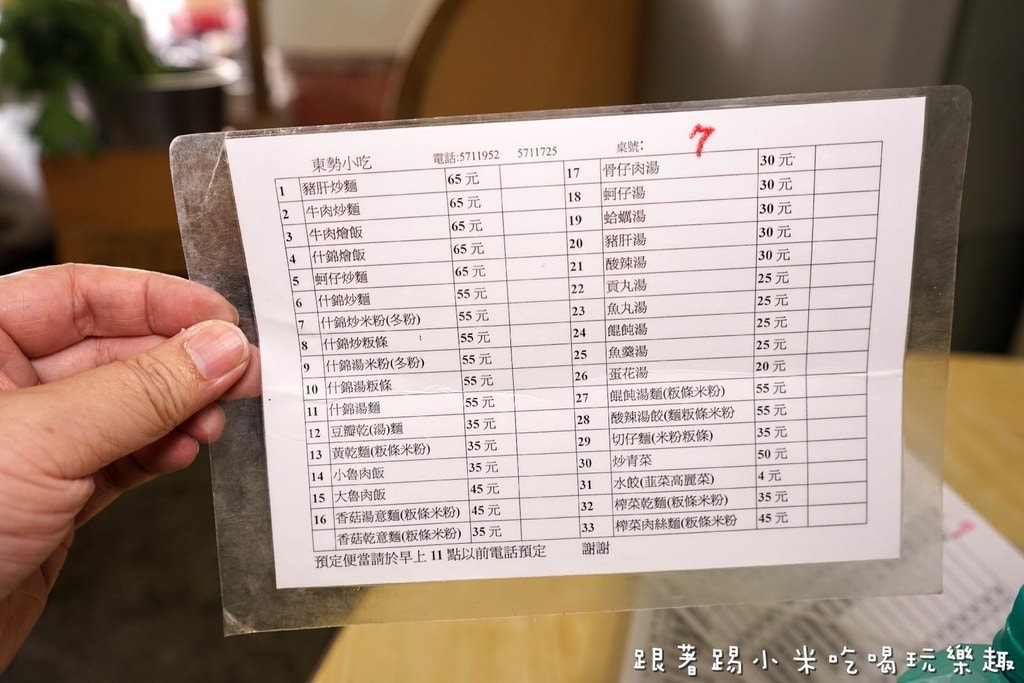 東勢小吃 電話:5711952 5711725 桌號: 7
1 豬肝炒麵 65 元
2 牛肉炒麵 65 元
3 牛肉燴飯 65 元
4 什錦燴飯 65 元
5 蚵仔炒麵 65 元
6 什錦炒麵 55 元
7 什錦炒米粉(冬粉) 55 元
8 什錦炒粄條 55 元
9 什錦湯米粉(冬粉) 55 元
10 什錦湯粄條 55 元
11 什錦湯麵 55 元
12 豆瓣乾(湯)麵 35 元
13 黃乾麵(粄條米粉) 35 元
14 小魯肉飯 35 元
15 大魯肉飯 45 元
16 香菇湯意麵(粄條米粉) 45 元
香菇乾意麵(粄條米粉) 35 元
17 骨仔肉湯 30 元
18 蚵仔湯 30 元
19 蛤蠣湯 30 元
20 豬肝湯 30 元
21 酸辣湯 30 元
22 貢丸湯 25 元
23 魚丸湯 25 元
24 餛飩湯 25 元
25 魚羹湯 25 元
26 蛋花湯 20 元
27 餛飩湯麵(粄條米粉) 55 元
28 酸辣湯餃(麵粄條米粉 55 元
29 切仔麵(米粉粄條) 35 元
30 炒青菜 50 元
31 水餃(韮菜高麗菜) 4 元
32 榨菜乾麵(粄條米粉) 35 元
33 榨菜肉絲麵(粄條米粉 45 元
預定便當請於早上 11 點以前電話預定 謝謝
跟著踢小米吃喝玩樂趣